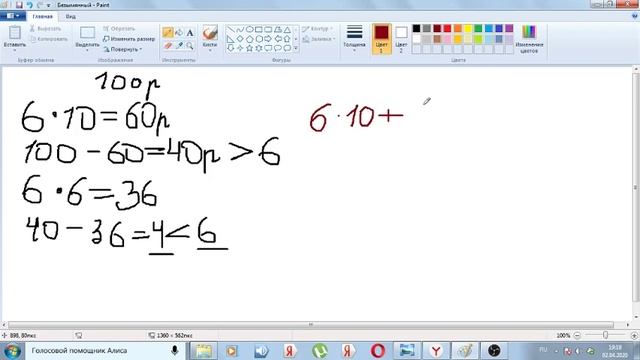 Безымянный - Paint
Главная Вид
Вставить
Выделить
Обрезать
Изменить размер
Повернуть
Кисти
Контур
Заливка
Толщина
Цвет 1
Цвет 2
Изменение цветов
Буфер обмена
Изображение
Инструменты
Фигуры
Цвета
100р
6·10=60р
6·10+
100-60=40р>6
6·6=36
40-36=4<6
898, 80пкс
1360 × 562пкс
100%
Голосовой помощник Алиса
RU
19:19
02.04.2020